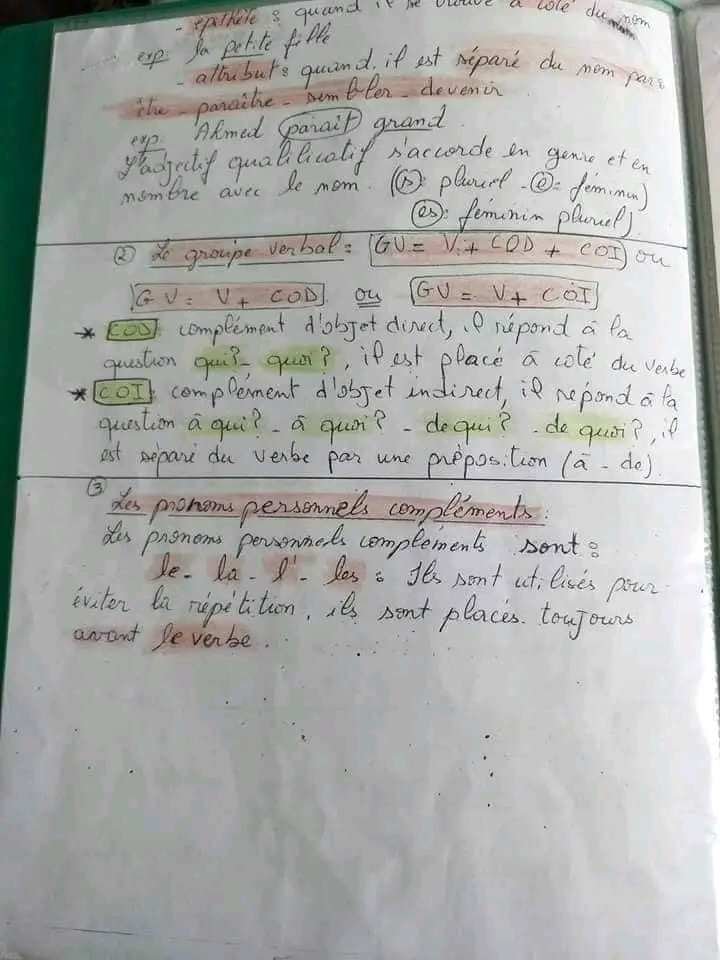 - épithète : quand il se trouve à côté du nom
exp: la petite fille
- attribut : quand il est séparé du nom par :
être - paraître - sembler - devenir
exp: Ahmed paraît grand
L'adjectif qualificatif s'accorde en genre et en
nombre avec le nom. (s): pluriel - (e)= féminin)
(es): féminin pluriel)
② Le groupe verbal = GV = V + COD + COI ou
GV = V + COD ou GV = V + COI
* COD: complément d'objet direct, il répond à la
question qui? - quoi?, il est placé à coté du verbe
* COI: complément d'objet indirect, il répond à la
question à qui? - à quoi? - de qui? - de quoi?, il
est séparé du verbe par une préposition (à - de).
③
Les pronoms personnels compléments :
Les pronoms personnels compléments sont :
le - la - l' - les : Ils sont utilisés pour
éviter la répétition, ils sont placés toujours
avant le verbe.